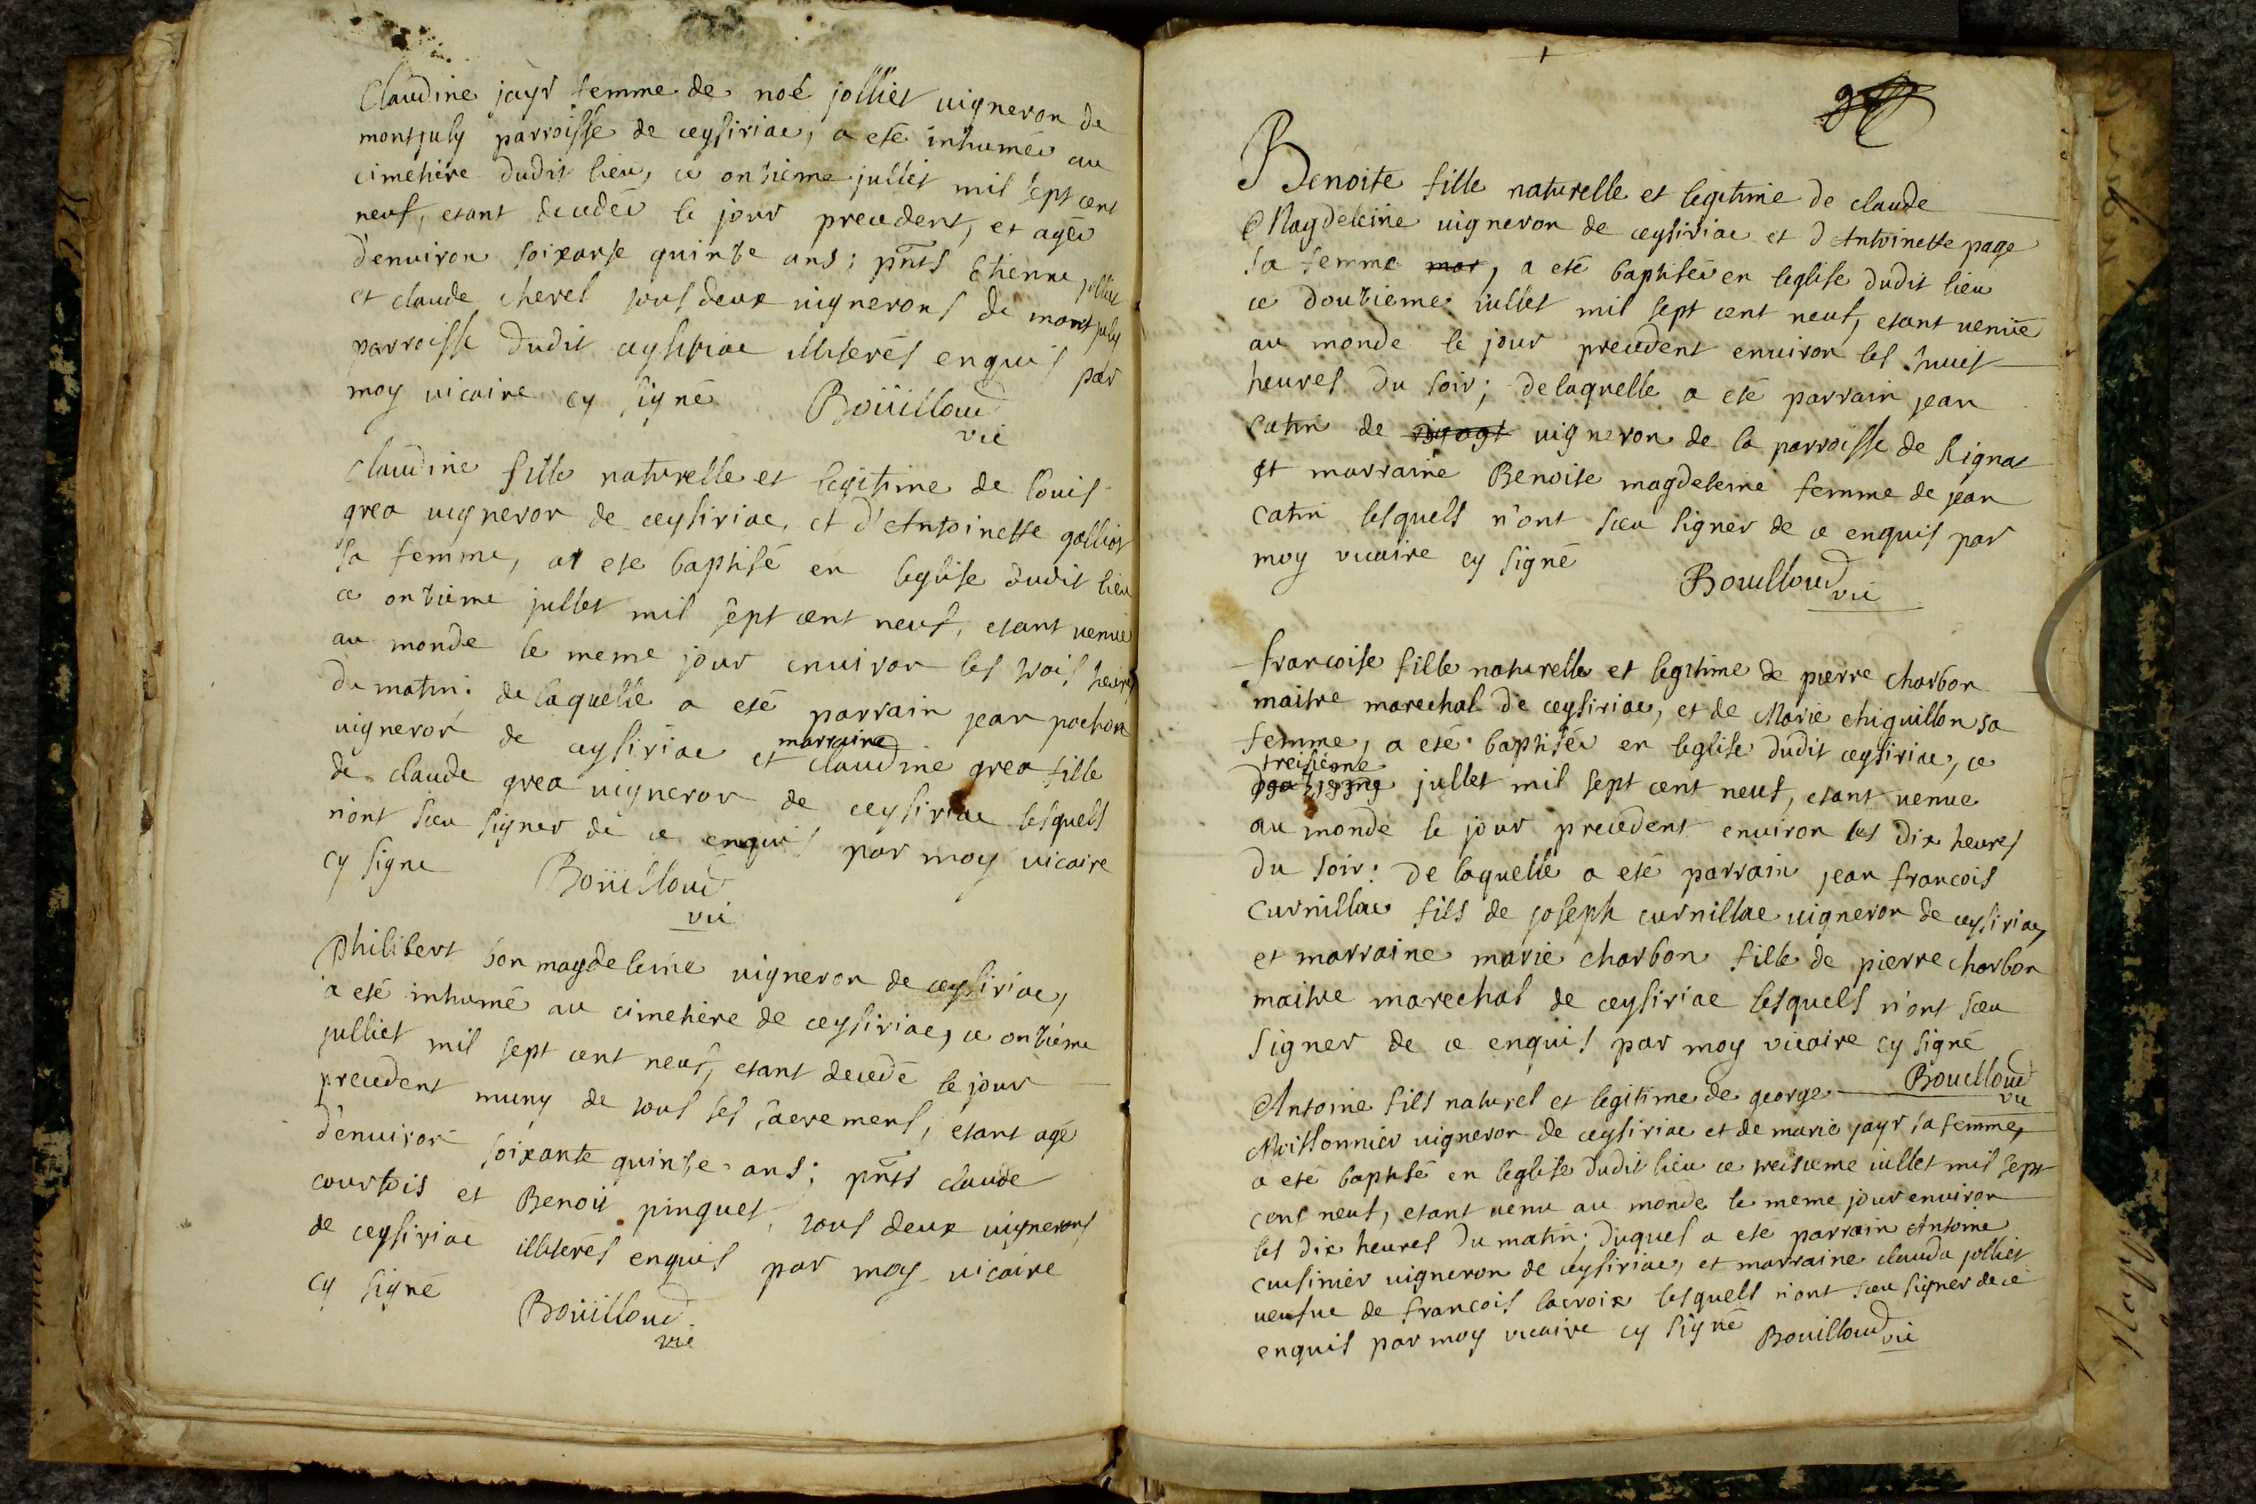 Claudine jayr femme de noé jolliet vigneron de
montjuly parroisse de ceysiriac, a eté inhumée au
cimetiere dudit lieu, ce onzieme jullet mil sept cent
neuf, etant decedée le jour precedent, et agée
d'environ soixante quinze ans; pnts Etienne jolliet
et claude chevel tous deux vignerons de montjuly
parroisse dudit ceysiriac illiterés enquis par
moy vicaire cy signé Boüilloud
vic
Claudine fille naturelle et legitime de louis
grea vigneron de ceysiriac, et d'Antoinette galliot
sa femme, at ete baptisé en leglise dudit lieu
ce onzieme jullet mil sept cent neuf, etant venue
au monde le meme jour environ les trois heures
du matin; de laquelle a eté parrain jean pochon
vigneron de ceysiriac et marraine claudine grea fille
de claude grea vigneron de ceysiriac lesquels
n'ont sceu signer de ce enquis par moy vicaire
cy signe Boüilloud
vic
Philibert bon magdeleine vigneron de ceysiriac,
a eté inhumé au cimetiere de ceysiriac, ce onzieme
julliet mil sept cent neuf, etant decedé le jour
precedent muny de tous les sacremens, etant agé
d'environ soixante quinze ans; pnts claude
courtois et Benoit pinguet, tous deux vignerons
de ceysiriac illiterés enquis par moy vicaire
cy signé Boüilloud
vic
Benoite fille naturelle et legitime de claude
Magdeleine vigneron de ceysiriac et d'Antoinette page
sa femme mar, a eté baptisée en leglise dudit lieu
ce douzieme jullet mil sept cent neuf, etant venüe
au monde le jour precedent environ les huit
heures du soir; de laquelle a eté parrain jean
catin de vigneron de la parroisse de Rignat
et marraine Benoite magdeleine femme de jean
catin lesquels n'ont sceu signer de ce enquis par
moy vicaire cy signé
Bouilloud vic
francoise fille naturelle et legitime de pierre charbon
maitre marechal de ceysiriac, et de Marie chiguillon sa
femme, a eté baptisée en leglise dudit ceysiriac, ce
treisieme
douzieme jullet mil sept cent neuf, etant venue
au monde le jour precedent environ les dix heures
du soir: de laquelle a eté parrain jean francois
curnillac fils de joseph curnillac vigneron de ceysiriac,
et marraine marie charbon fille de pierre charbon
maitre marechal de ceysiriac lesquels n'ont sceu
signer de ce enquis par moy vicaire cy signé
Bouilloud
vic
Antoine fils naturel et legitime de george
Moissonnier vigneron de ceysiriac et de marie jayr sa femme,
a eté baptisé en leglise dudit lieu ce treisieme jullet mil sept
cent neuf, etant venu au monde le meme jour environ
les dix heures du matin; duquel a ete parrain Antoine
cuisinier vigneron de ceysiriac, et marraine clauda jolliet
veufve de francois lacroix lesquels n'ont sceu signer de ce
enquis par moy vicaire cy signé Bouilloud vic